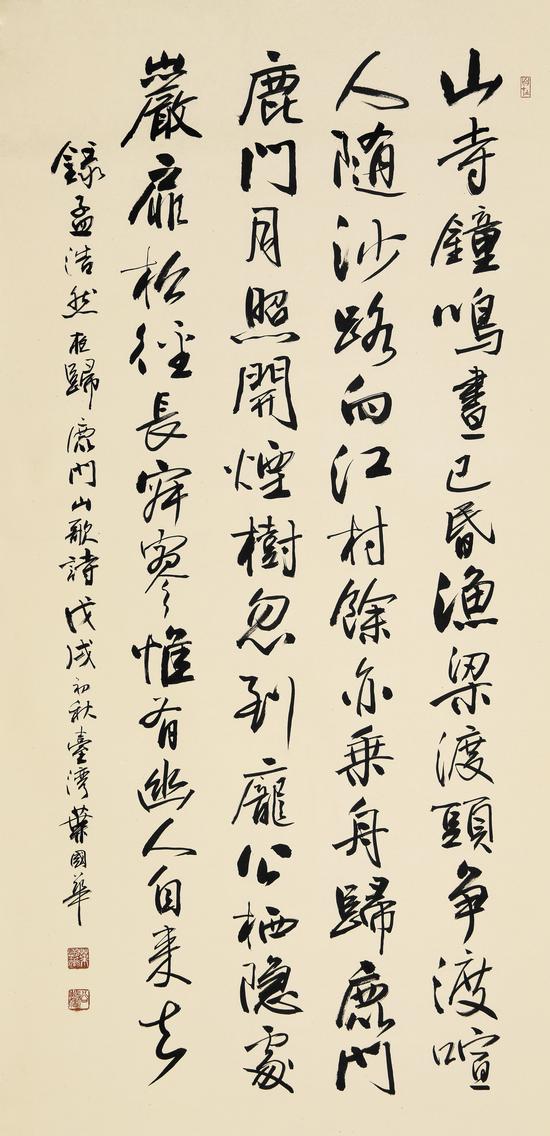 山寺鐘鳴晝已昏漁梁渡頭争渡喧
人随沙路向江村餘亦乗舟歸鹿門
鹿門月照開煙樹忽到龐公栖隐處
巖扉松徑長寂寥惟有幽人自来去
録孟浩然夜歸鹿門山歌詩戊戌初秋臺灣葉國華